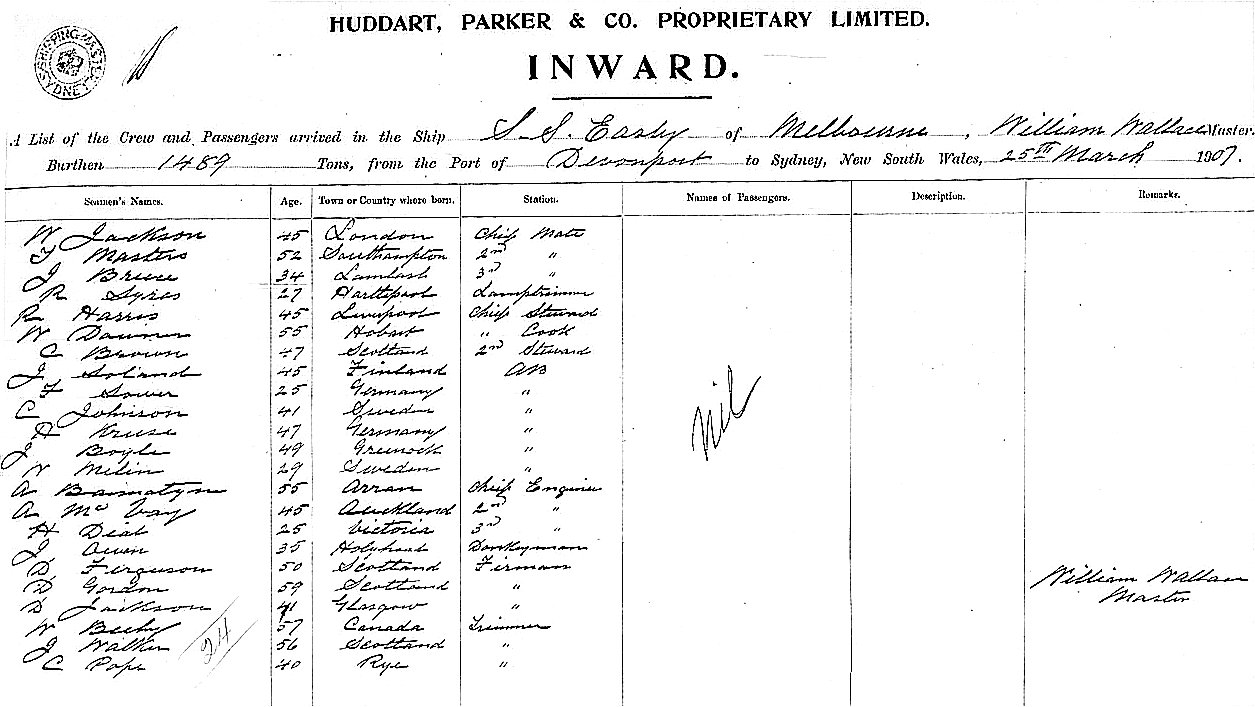 HUDDART, PARKER & CO. PROPRIETARY LIMITED.
INWARD.
SHIPPING MASTER SYDNEY
A List of the Crew and Passengers arrived in the Ship S.S. Easby of Melbourne, William Wallace Master.
Burthen 1489 Tons, from the Port of Devonport to Sydney, New South Wales, 25TH March 1907.
Seamen's Names. Age. Town or Country where born. Station. Names of Passengers. Description. Remarks.
W Jackson 45 London Chief Mate
F Masters 52 Southampton 2nd "
J Bruce 34 Lamlash 3rd "
R Syres 27 Hartlepool Lamptrimmer
R Harris 45 Liverpool Chief Steward
W Downer 55 Hobart " Cook
C Brown 47 Scotland 2nd Steward
J Soland 45 Finland AB
F Sower 25 Germany "
C Johnson 41 Sweden "
A Kruse 47 Germany "
J Boyle 49 Greenock "
N Melin 29 Sweden "
nil
A Bannatyne 55 Arran Chief Engineer
A McVay 45 Auckland 2nd "
H Dial 25 Victoria 3rd "
J Owen 35 Holyhead Donkeyman
D Ferguson 50 Scotland Firman
D Gordon 59 Scotland "
William Wallace
Master
D Jackson 41 Glasgow "
W Beeby 57 Canada Trimmer
J Walker 56 Scotland "
C Pope 40 Rye "
24